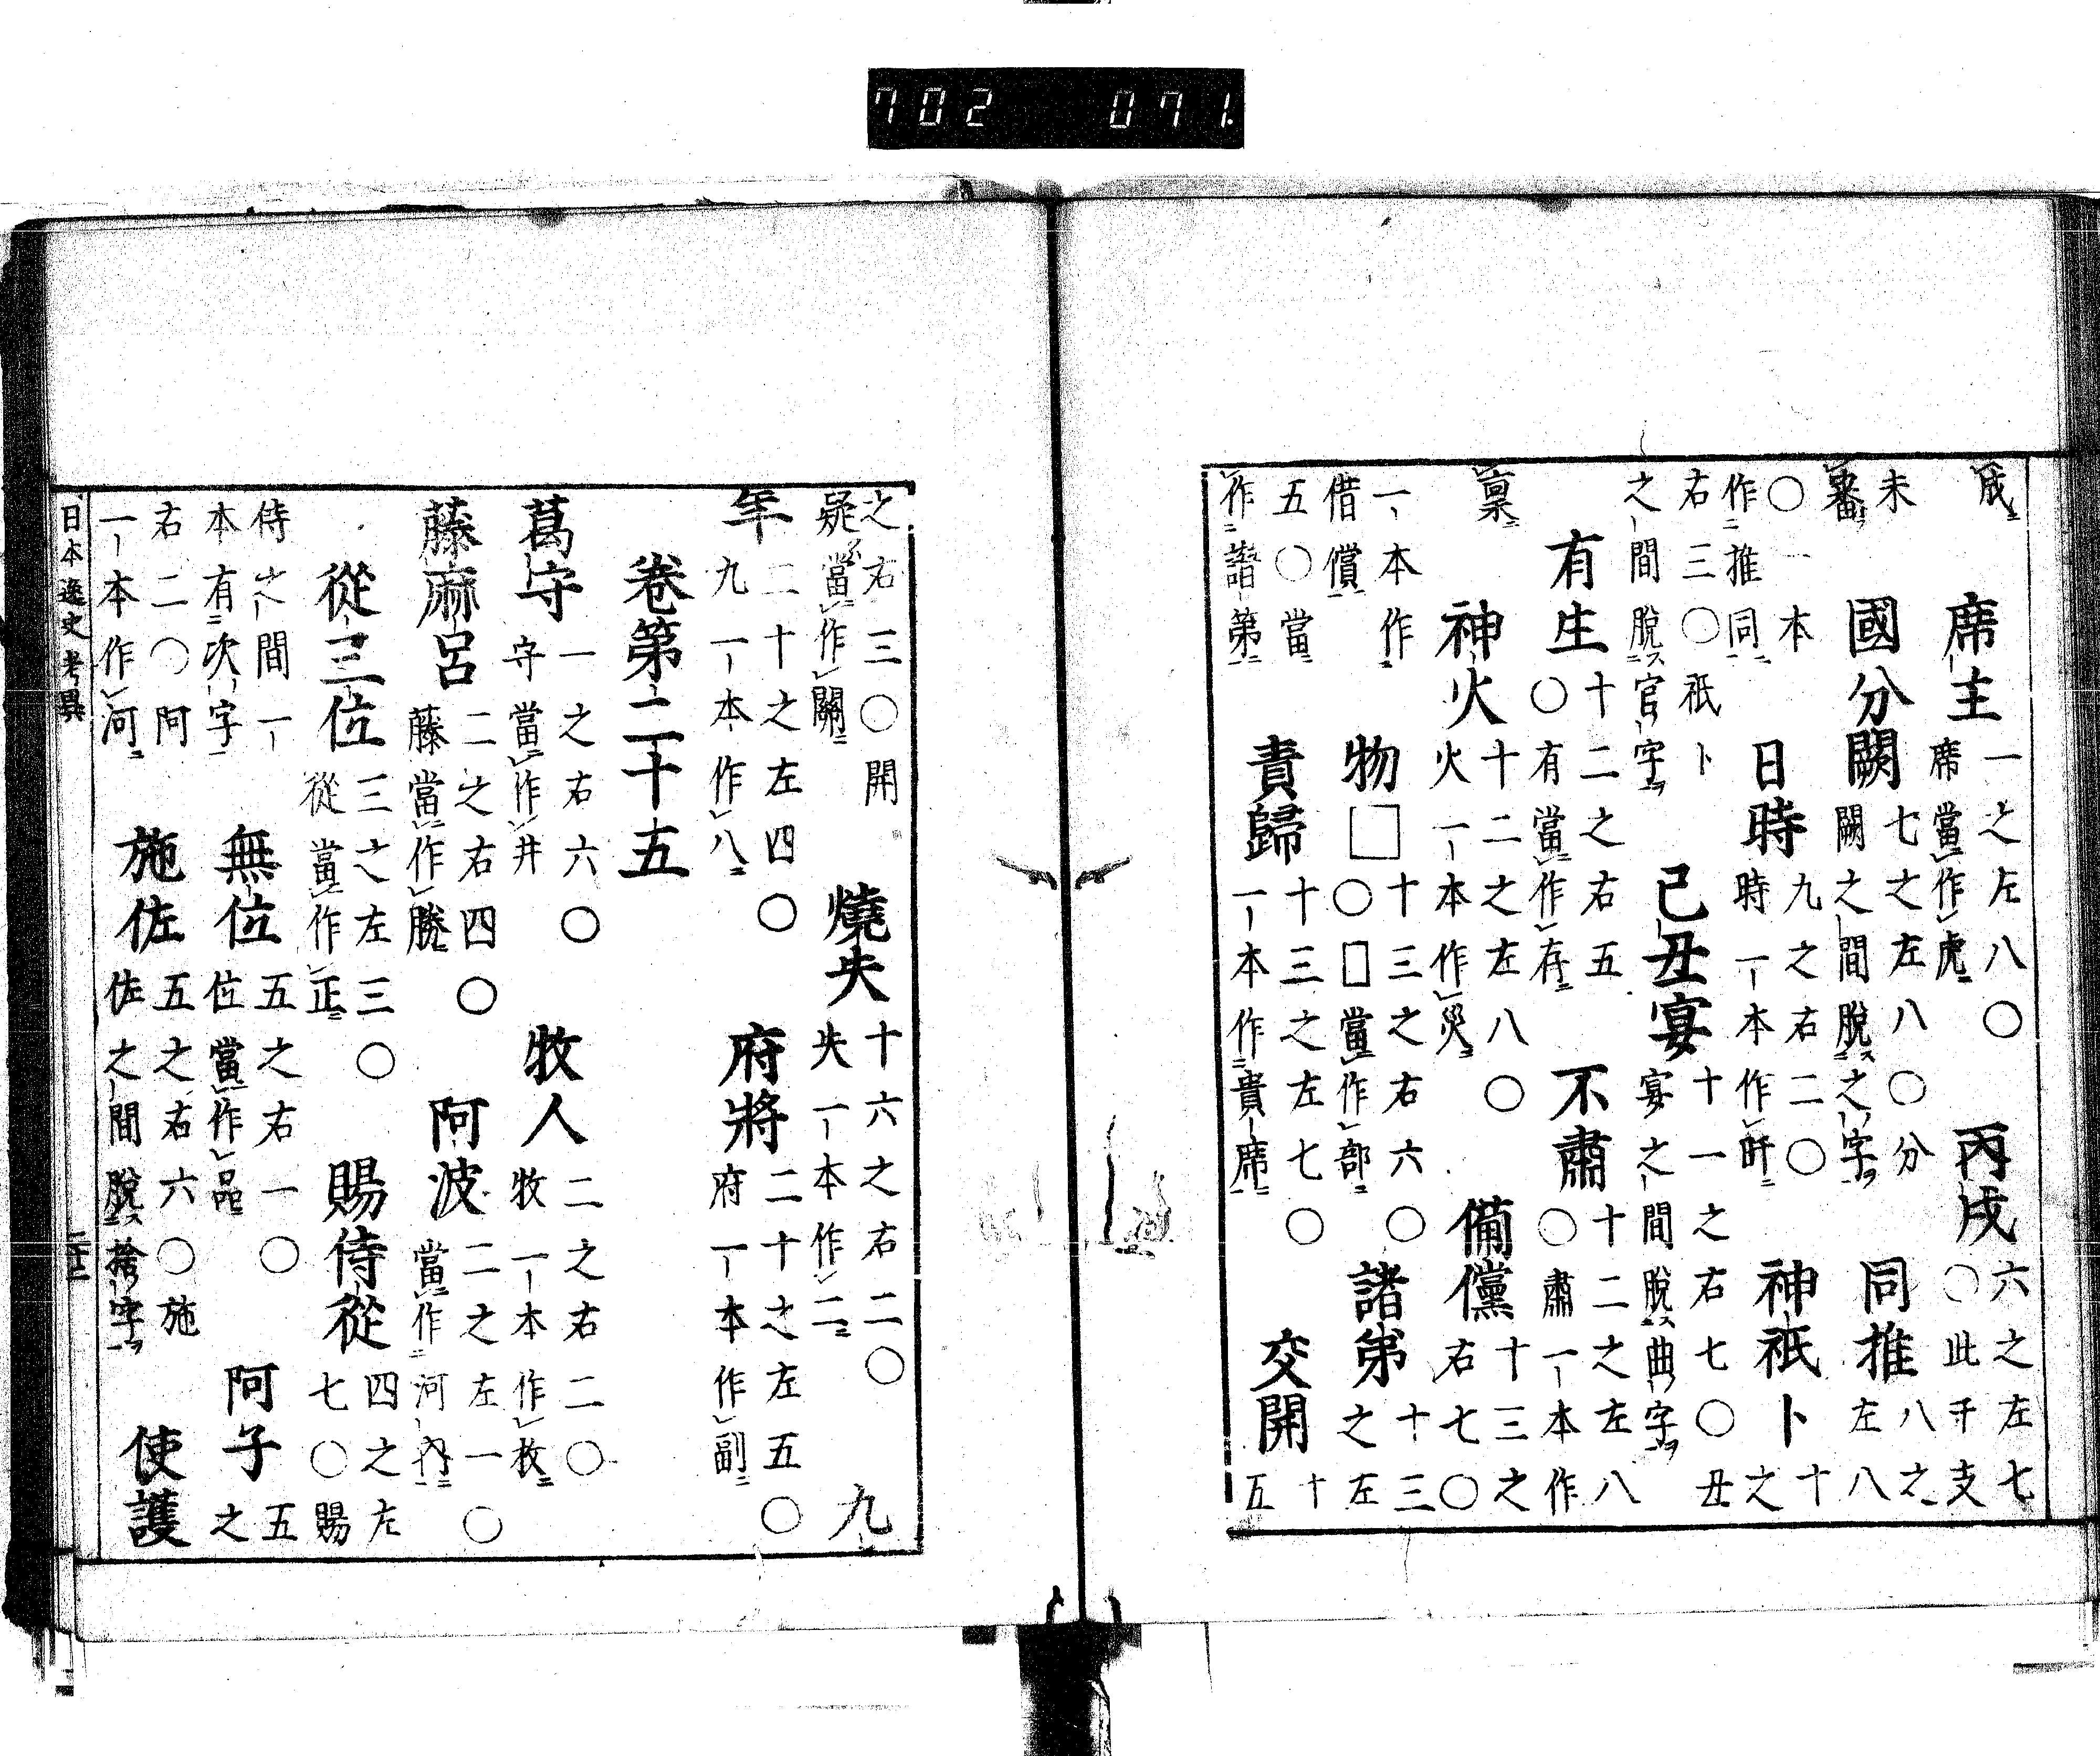 702 071
成ニ席主一之左八〇席當作虎ニ丙戌六之左七〇此干支
未審國分闕七之左八〇分闕之間脫ス之字ヲ同推八之左八
〇一本作推同ニ日時九之右二〇時一本作旿ニ神祇卜十之
右三〇祇卜之間脫ス官字ヲ己丑宴十一之右七〇丑宴之間脫ス曲字ヲ
有生十二之右五〇有當作存ニ不肅十二之左八〇肅一本作
稟ニ神火十二之左八〇火一本作災ニ備儻十三之右七〇
一本作借償ニ物□十三之右六〇□當作部ニ諸弟十三之左
五〇當作諸第ニ責歸十三之左七〇一本作貴席ニ交開十五
之右三〇開疑當作關ニ燒失十六之右二〇失一本作二ニ九
年二十之左四〇九一本作八ニ府將二十之左五〇府一本作副ニ
卷第二十五
葛守一之右六〇守當作井牧人二之右二〇牧一本作枚ニ
藤麻呂二之右四〇藤當作勝ニ阿波二之左一〇當作河內ニ
從三位三之左三〇從當作正ニ賜侍從四之左七〇賜
侍之間一本有次字ニ無位五之右一〇位當作品ニ阿子五之
右二〇阿一本作河ニ施佐五之右六〇施佐之間脫ス捨字ヲ使護
日本逸史考異